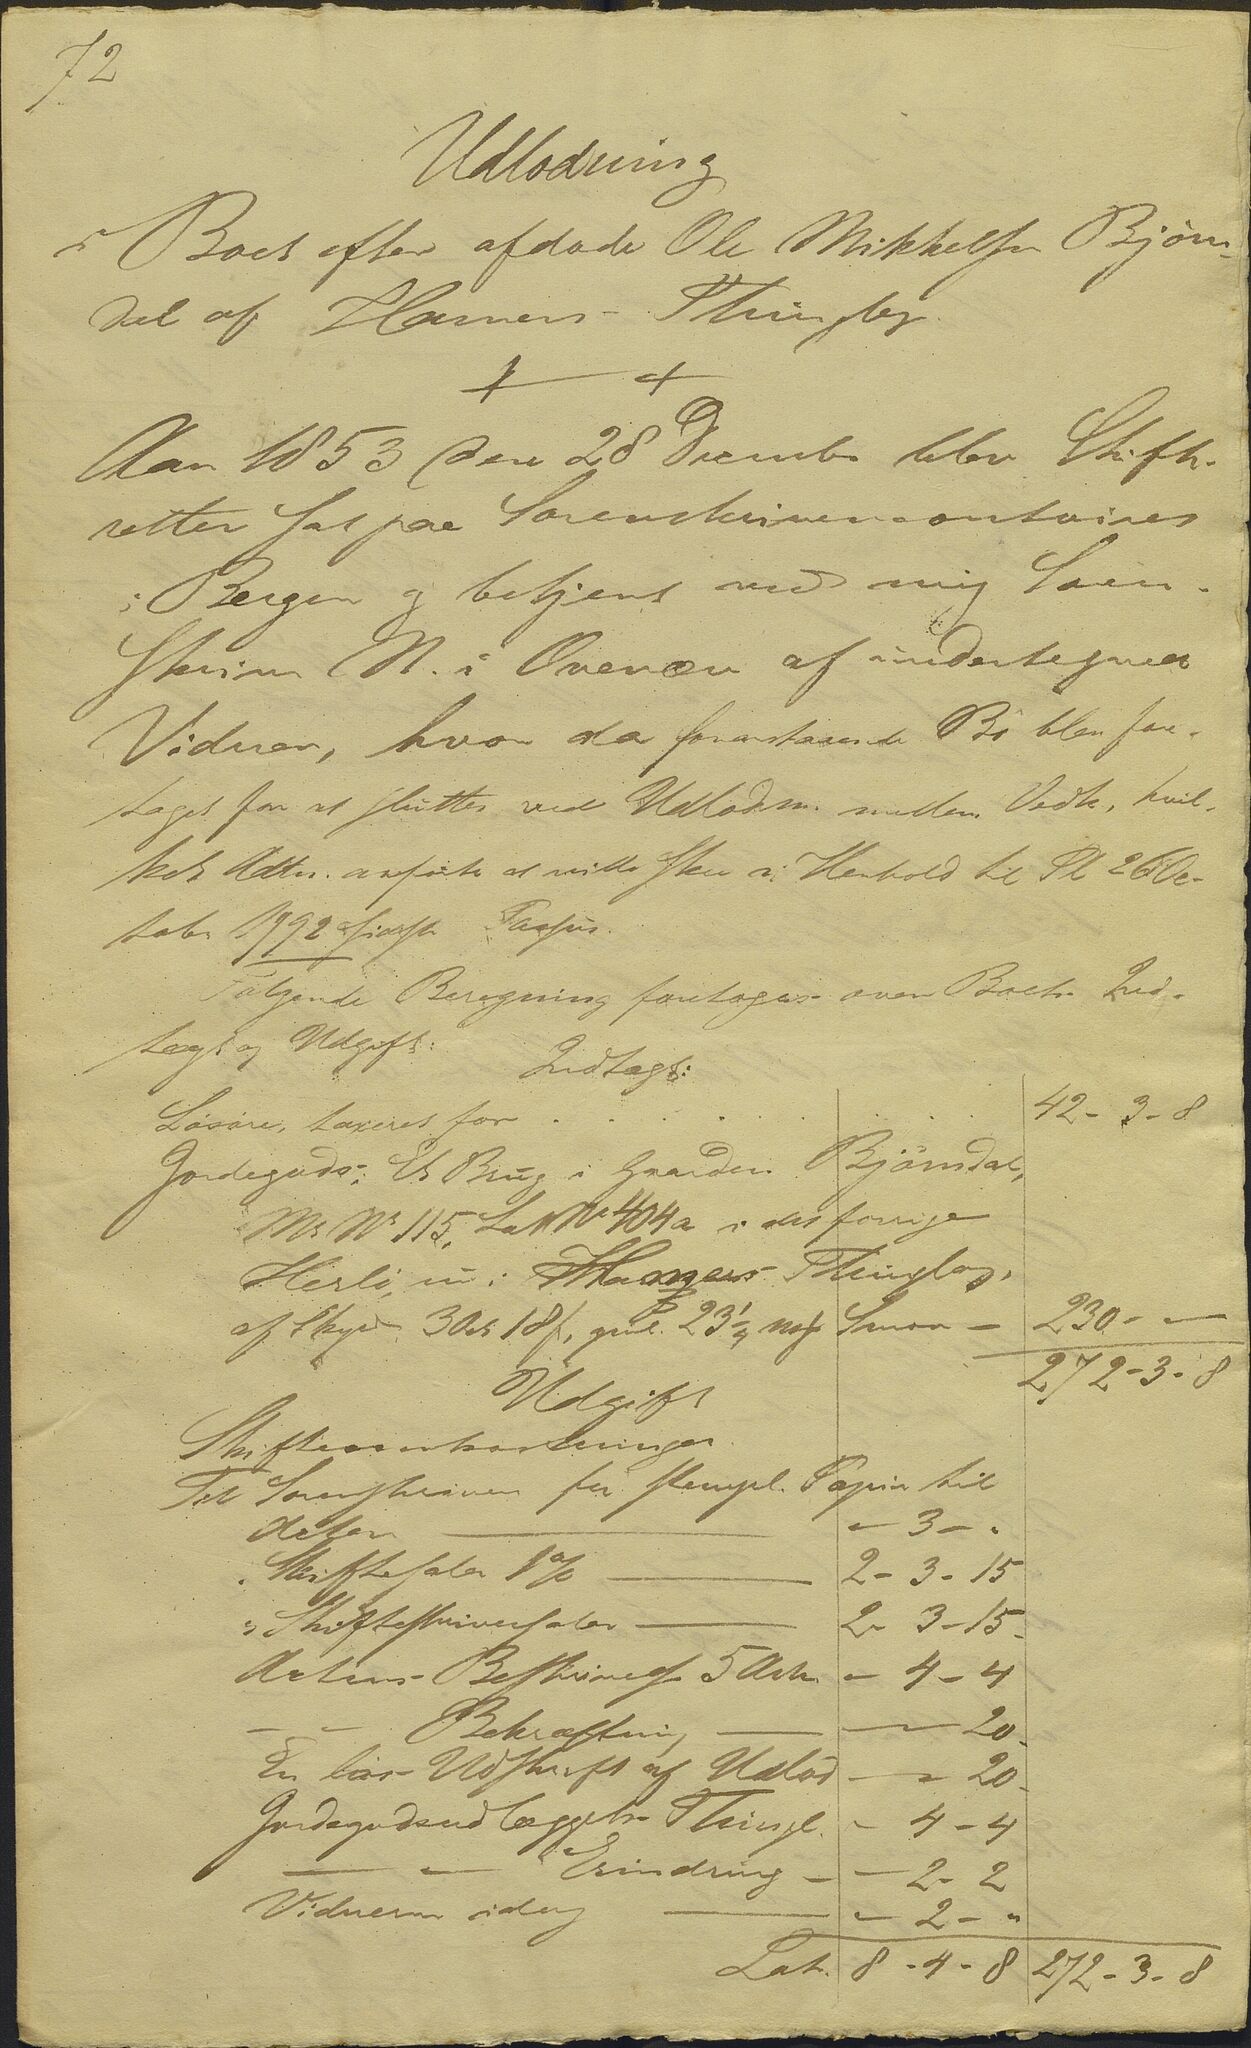 72
Udlodning
i Boet efter afdøde Ole Mikkelsen Bjørn-
dal af Hammers Thinglag.
Aar 1853 den 28 December blev Skifte-
retten sat paa Sorenskrivercontoiret
i Bergen og betjent ved mig Soren-
skriver N. i Overvær af undertegnede
Vidner, hvor da foranstaaende Bo blev fore-
taget for at sluttes ved Udlodn. mellem Vedk., hvil-
ket Retten anførte at ville skee i Henhold til Pl 26 Oc-
tober 1792 sidste Passus.
Følgende Beregning foretoges over Boets Ind-
tægt og Udgift:
Indtægt:
Løsøre, taxeret for . . . . . . . 42 - 3 - 8
Jordegods: Et Brug i Gaarden Bjørndal,
M. No 115, Løb No 404a i det forrige
Herlø, nu i Hammers Thinglag,
af Skyld 3 Ort 18 s, gml. 23 1/4 mk Smør - 230 - -
272 - 3 - 8
Udgift
Skifteomkostninger.
Til Sorenskriveren for stempl. Papir til
Acten — - 3 - "
Skiftesalar 1% — 2 - 3 - 15
" Skifteskriversalar — 2 - 3 - 15
Actens Beskrivelse 5 Ark - 4 - 4
— " — Bekræftning — - - 20
En løs Udskrift af Udlod - - 20
Jordegodsudlæggets Thingl. - 4 - 4
— " — Erindring - - 2 - 2
Vidnerne idag — - 2 - "
Lat. 8 - 4 - 8 272 - 3 - 8